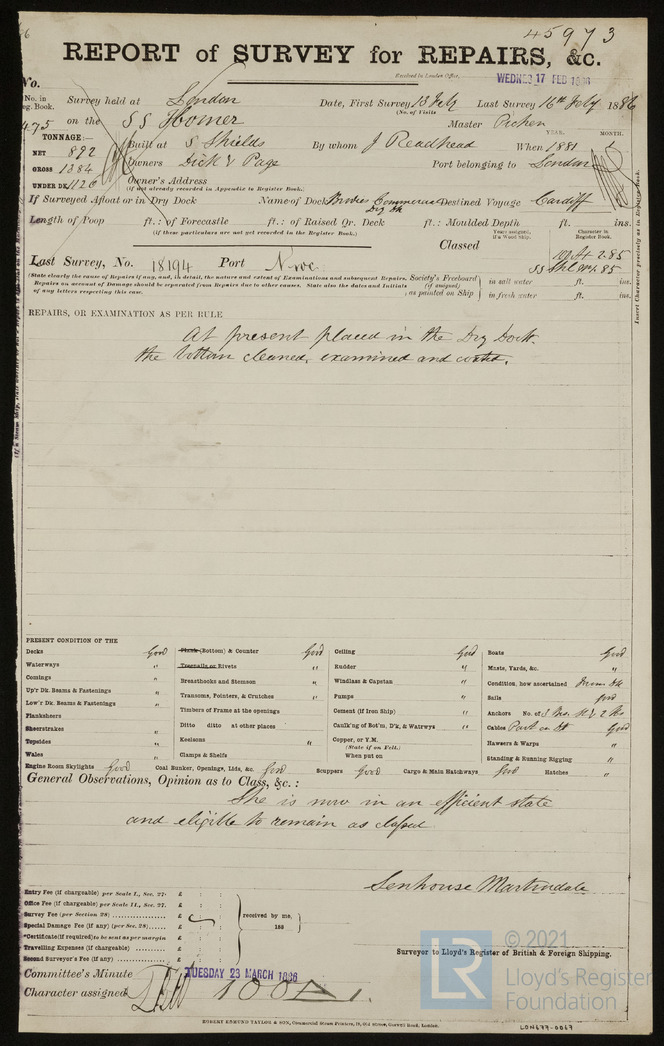 45973
REPORT of SURVEY for REPAIRS, &c.
Received in London Office, WEDNES 17 FEB 1886
No.
No. in Reg. Book. Survey held at London Date, First Survey 13 Feby Last Survey 16th Feby 1886
(No. of Visits
475 on the SS Homer Master Pichen
TONNAGE:—
YEAR. MONTH.
NET 892 Built at S Shields By whom J Readhead When 1881
GROSS 1384 Owners Dick & Page Port belonging to London
UNDER DK 1126 Owner's Address
(if not already recorded in Appendix to Register Book.)
If Surveyed Afloat or in Dry Dock Name of Dock Commercial Dry Dk Destined Voyage Cardiff
Length of Poop ft.: of Forecastle ft.: of Raised Qr. Deck ft.: Moulded Depth ft. ins.
(if these particulars are not yet recorded in the Register Book.)
Years assigned, if a Wood Ship. Character in Register Book.
Classed
Last Survey, No. 18194 Port Nwc
(State clearly the cause of Repairs if any, and, in detail, the nature and extent of Examinations and subsequent Repairs.
Repairs on account of Damage should be separated from Repairs due to other causes. State also the dates and Initials
of any letters respecting this case.
Society's Freeboard (if assigned) as painted on Ship
in salt water ft. ins.
in fresh water ft. ins.
Insert Character precisely as in Register Book.
REPAIRS, OR EXAMINATION AS PER RULE
At present placed in the Dry Dock
the bottom cleaned, examined and coated.
PRESENT CONDITION OF THE
Decks Good
Waterways "
Comings "
Up'r Dk. Beams & Fastenings "
Low'r Dk. Beams & Fastenings "
Planksheers
Sheerstrakes "
Topsides "
Wales "
Engine Room Skylights Good
Plank (Bottom) & Counter Good
Treenails or Rivets "
Breasthooks and Stemson "
Transoms, Pointers, & Crutches "
Timbers of Frame at the openings
Ditto ditto at other places
Keelsons "
Clamps & Shelfs
Coal Bunker, Openings, Lids, &c. Good
Ceiling Good
Rudder "
Windlass & Capstan "
Pumps "
Cement (if Iron Ship) "
Caulk'ng of Bot'm, D'k, & Watrwys "
Copper, or Y.M.
(State if on Felt.)
When put on
Scuppers Good
Cargo & Main Hatchways Good
Boats Good
Masts, Yards, &c. "
Condition, how ascertained from Dk
Sails Good
Anchors No. of
Cables Part on Dk Good
Hawsers & Warps "
Standing & Running Rigging "
Hatches "
General Observations, Opinion as to Class, &c.:
She is now in an efficient state
and eligible to remain as classed
Senhouse Martindale
Entry Fee (if chargeable) per Scale I., Sec. 27. £ : :
Office Fee (if chargeable) per Scale II., Sec. 27. £ : :
Survey Fee (per Section 28) £ : :
Special Damage Fee (if any) (per Sec. 28) £ : :
*Certificate (if required) to be sent as per margin £ : :
Travelling Expenses (if chargeable) £ : :
Second Surveyor's Fee (if any) £ : :
received by me,
188
Surveyor to Lloyd's Register of British & Foreign Shipping.
Committee's Minute TUESDAY 23 MARCH 1886
Character assigned 100A1.
ROBERT EDMUND TAYLOR & SON, Commercial Steam Printers, 19, Old Street, Goswell Road, London.
LR © 2021
Lloyd's Register
Foundation
LON677-0067